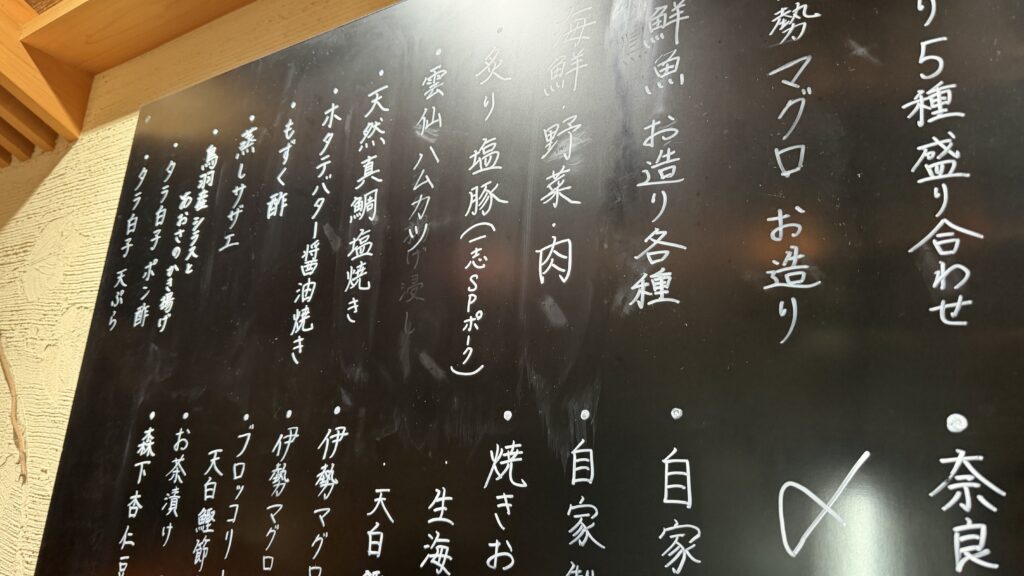 り5種盛り合わせ
勢マグロ お造り
鮮魚 お造り各種
海鮮・野菜・肉
・炙り 塩豚(一志SPポーク)
・雲仙ハムカツ
・天然真鯛 塩焼き
・ホタテバター醤油焼き
・もずく酢
・蒸しサザエ
・鳥羽産シラスと
あおさのかき揚げ
・タラ白子 ポン酢
・タラ白子 天ぷら
・奈良
〆
・自家
・自家製
・焼きお
・生海
・天白
・伊勢マグロ
・伊勢マグロ
・ブロッコリー
天白鰹節
・お茶漬け
・森下 杏仁豆